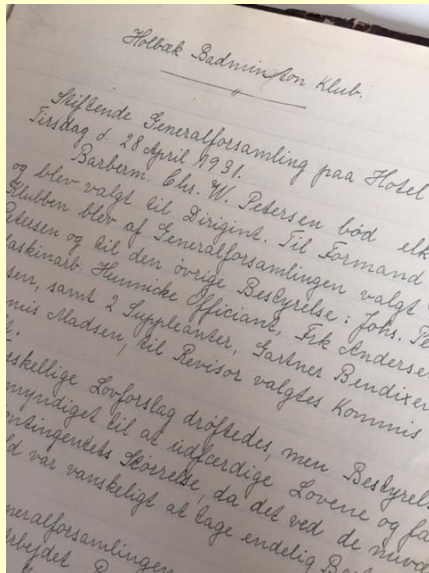 Holbæk Badminton Klub.
Stiftende Generalforsamling paa Hotel
Tirsdag d. 28 April 1931.
Barberm. Chr. W. Petersen bød
og blev valgt til Dirigint. Til Formand
Klubben blev af Generalforsamlingen valgt
Petersen og til den øvrige Bestyrelse: Johs.
Maskinarb. Hunnicke Officiant, Frk Andersen
sen, samt 2 Suppleanter, Gartner Bendixen
Madsen, til Revisor valgtes Kommis
Lovforslag drøftedes, men
til at udfærdige Lovene og
Størrelse, da det ved de
var vanskeligt at tage endelig